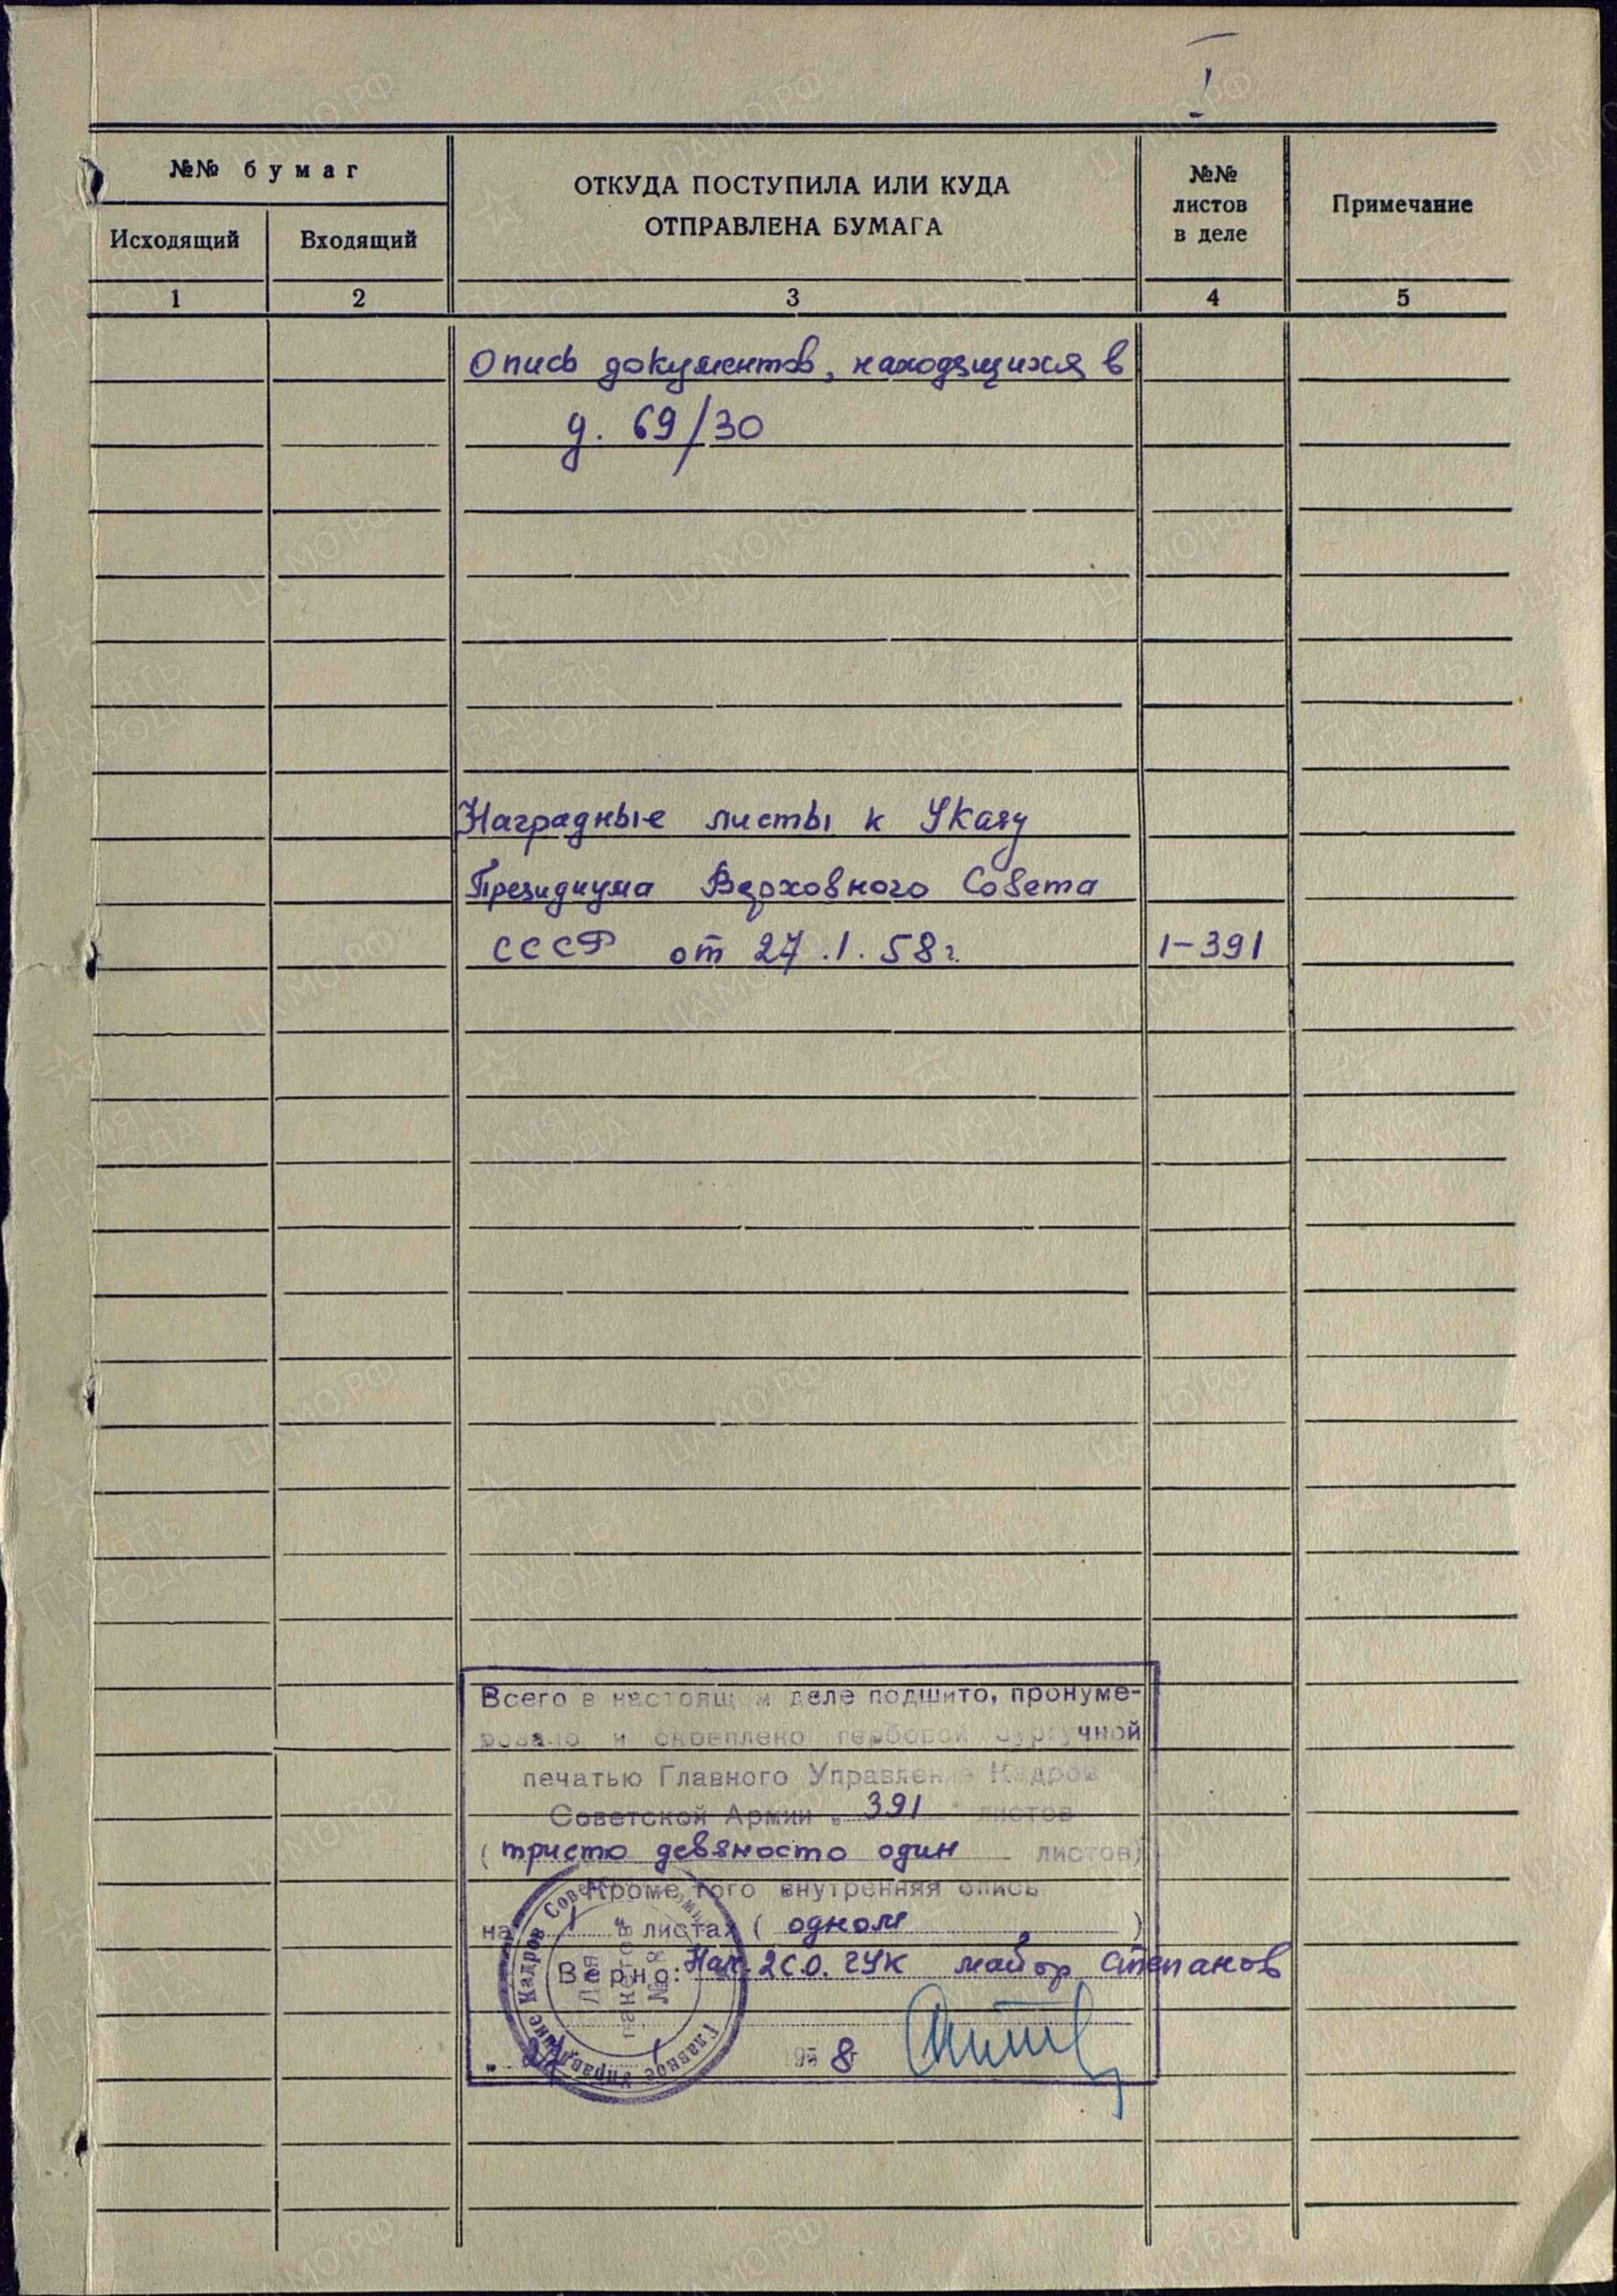 I
№№ бумаг
ОТКУДА ПОСТУПИЛА ИЛИ КУДА
ОТПРАВЛЕНА БУМАГА
№№
листов
в деле
Примечание
Исходящий
Входящий
1
2
3
4
5
Опись документов, находящихся в
д. 69/30
Наградные листы к Указу
Президиума Верховного Совета
СССР от 27.1.58г. 1-391
Всего в настоящем деле подшито, пронуме-
ровано и скреплено гербовой сургучной
печатью Главного Управления Кадров
Советской Армии „ 391 " листов
(тристо девяносто один листов)
Кроме того внутренняя опись
на 1 листах ( одном )
Верно: Нач. 2 С.О. ГУК майор Степанов
1958
Главное Управление Кадров Советской Армии
Для
пакетов
№ 8
ЦАМО.РФ
ПАМЯТЬ
НАРОДА